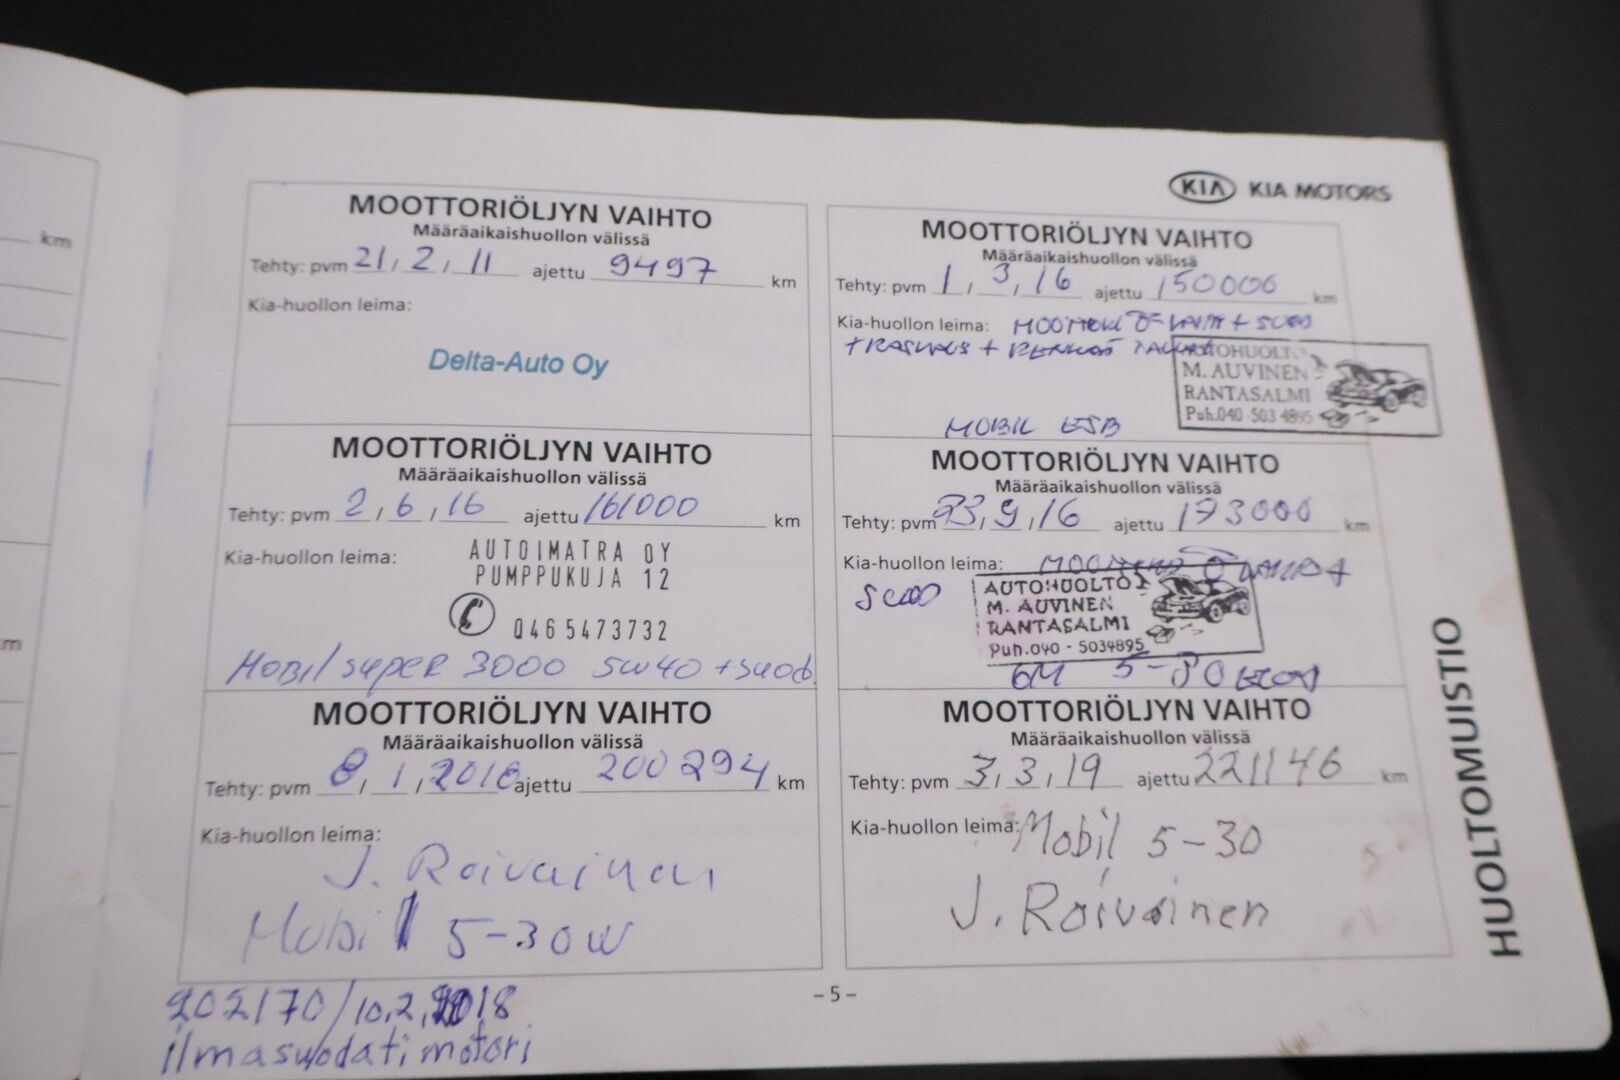 km
km
KIA KIA MOTORS
MOOTTORIÖLJYN VAIHTO
Määräaikaishuollon välissä
Tehty: pvm 21, 2, 11 ajettu 9497 km
Kia-huollon leima:
Delta-Auto Oy
MOOTTORIÖLJYN VAIHTO
Määräaikaishuollon välissä
Tehty: pvm 1, 3, 16 ajettu 150000 km
Kia-huollon leima:
+ RASVAUS + RENKAS
AUTOHUOLTO
M. AUVINEN
RANTASALMI
Puh.040-503 4895
MOBIL ESB
MOOTTORIÖLJYN VAIHTO
Määräaikaishuollon välissä
Tehty: pvm 2, 6, 16 ajettu 161000 km
Kia-huollon leima:
AUTOIMATRA OY
PUMPPUKUJA 12
046 5473732
Mobil super 3000 5W40 + suod.
MOOTTORIÖLJYN VAIHTO
Määräaikaishuollon välissä
Tehty: pvm 23, 9, 16 ajettu 173000 km
Kia-huollon leima:
AUTOHUOLTO
M. AUVINEN
RANTASALMI
Puh.040-5034895
GM 5-30
MOOTTORIÖLJYN VAIHTO
Määräaikaishuollon välissä
Tehty: pvm 8, 1, 2018 ajettu 200294 km
Kia-huollon leima:
J. Roivainen
Mobil 5-30W
MOOTTORIÖLJYN VAIHTO
Määräaikaishuollon välissä
Tehty: pvm 3, 3, 19 ajettu 221146 km
Kia-huollon leima: Mobil 5-30
J. Roivainen
HUOLTOMUISTIO
-5-
202170/10.2.2018
ilmasuodati motori